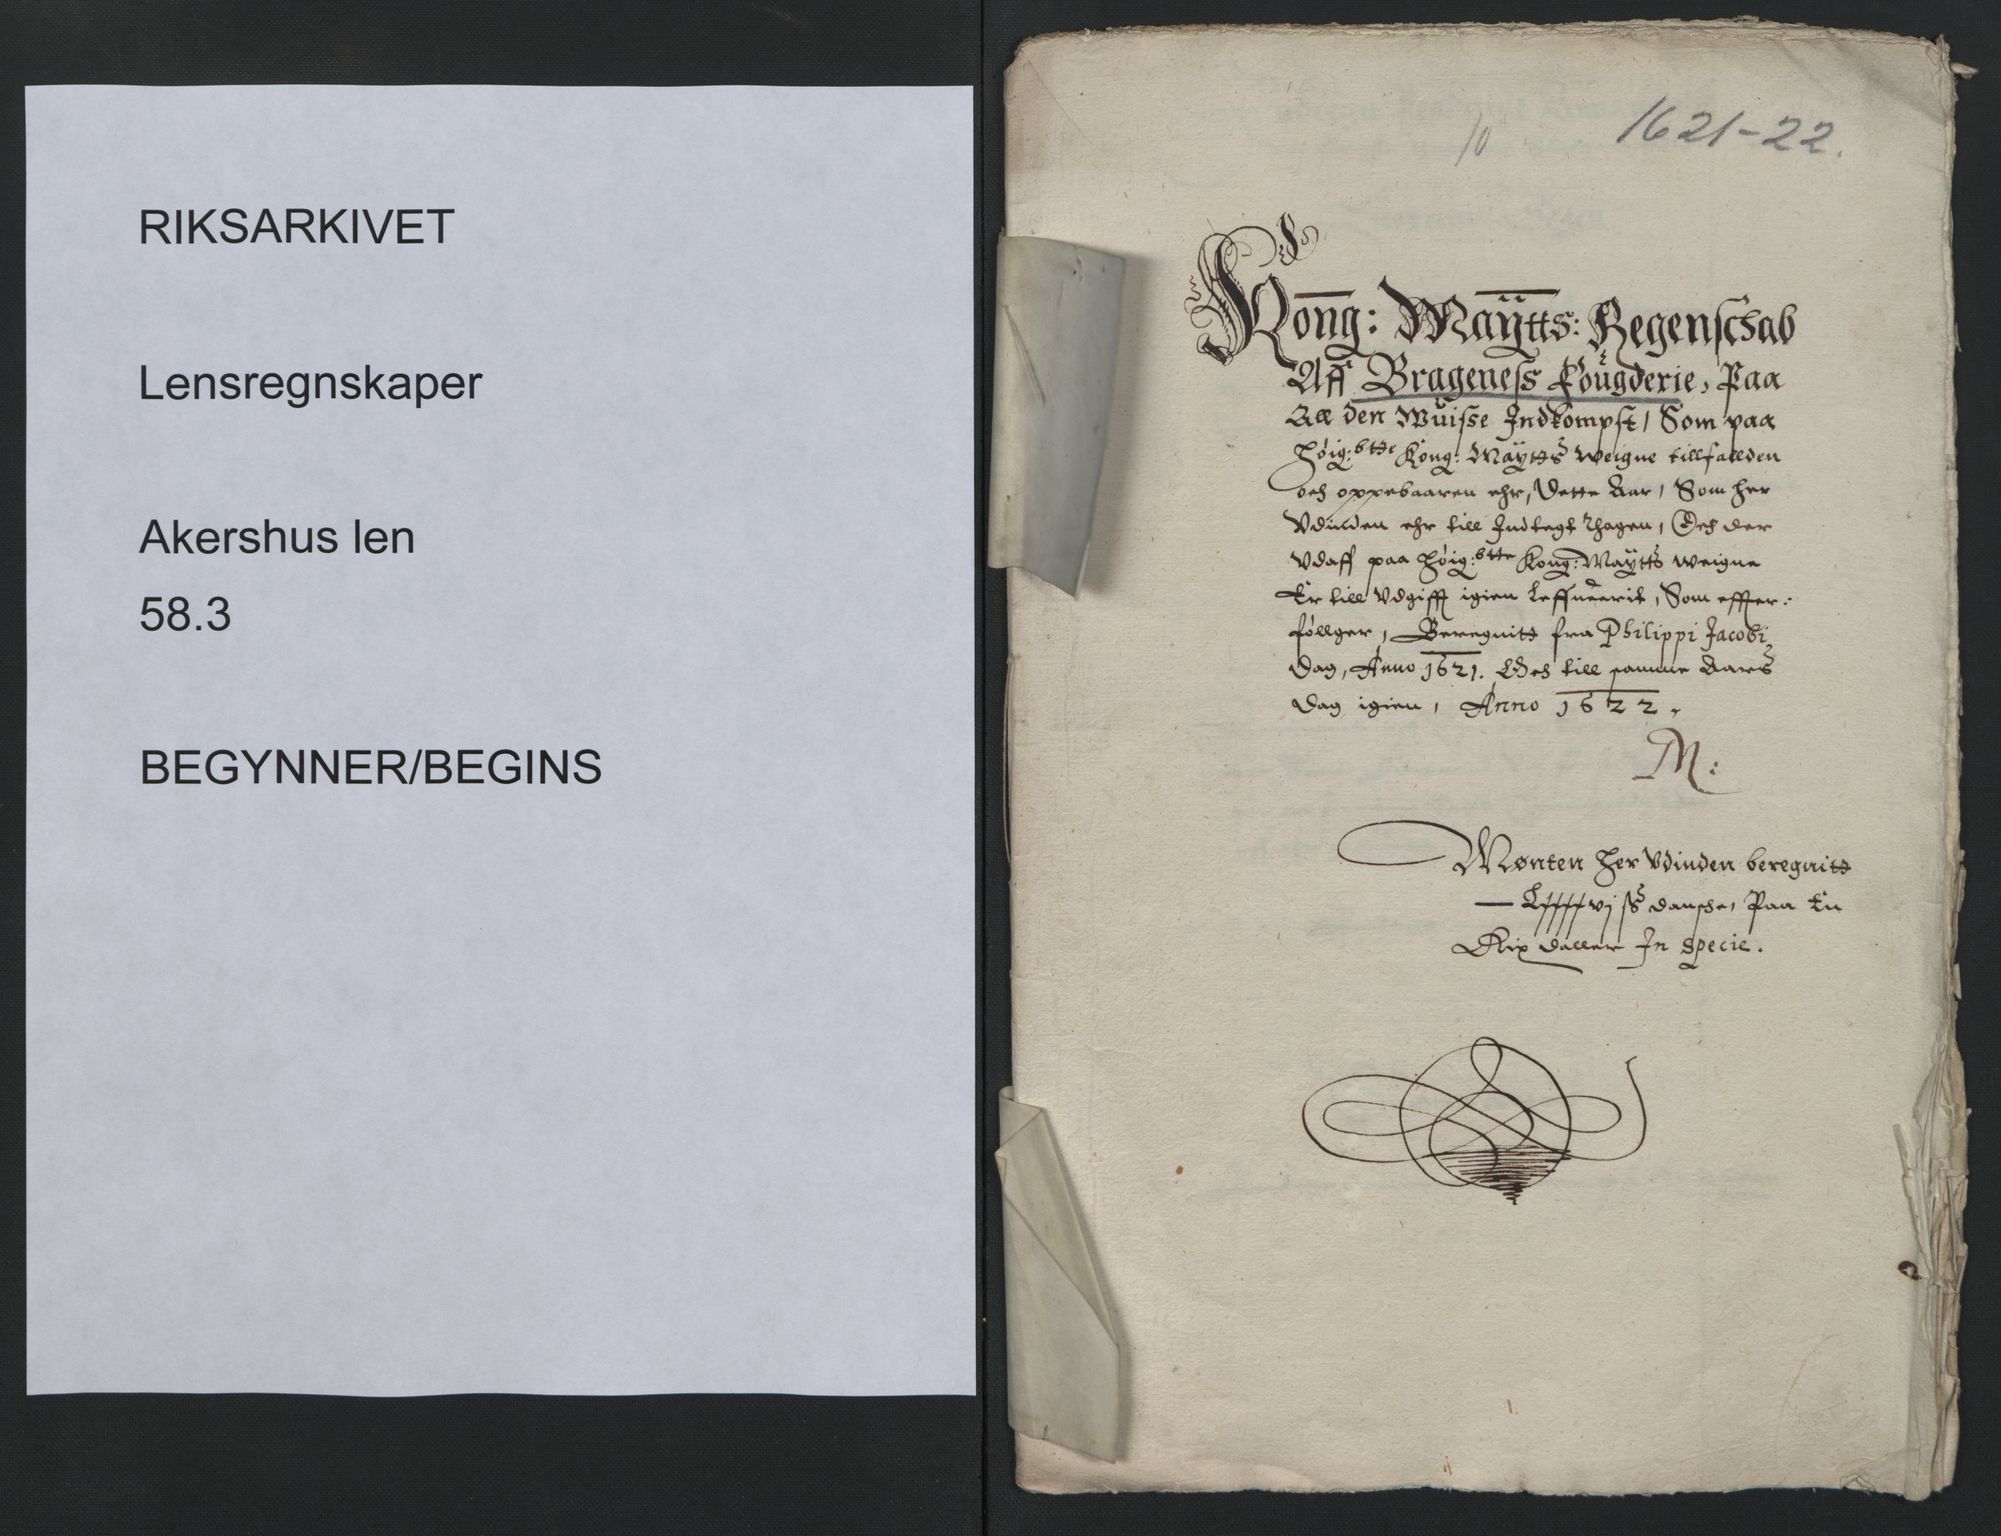 RIKSARKIVET
Lensregnskaper
Akershus len
58.3
BEGYNNER/BEGINS
10
1621-22.
Kong: Maÿtts: Regenschab
Aff Brageness Fougderie, Paa
All den Wuisse Indkompst, Som paa
Høig:btte Kong: Maÿtts weigne tillfallden
och oppebaaren ehr, Dette Aar, Som her
Vdinden ehr till Indtegt thagen, Och der
Vdaff paa Høig:btte Kong: Maÿtts weigne
Er till Vdgifft igien Leffuerit, Som effter:
føllger, Beregnitt fra Philippi Jacobi
Dag, Anno 1621. Och till samme Aars
Dag igien, Anno 1622.
M:
Mønten her Vdinden beregnitt
dansche, Paa En
Rix daller In specie.